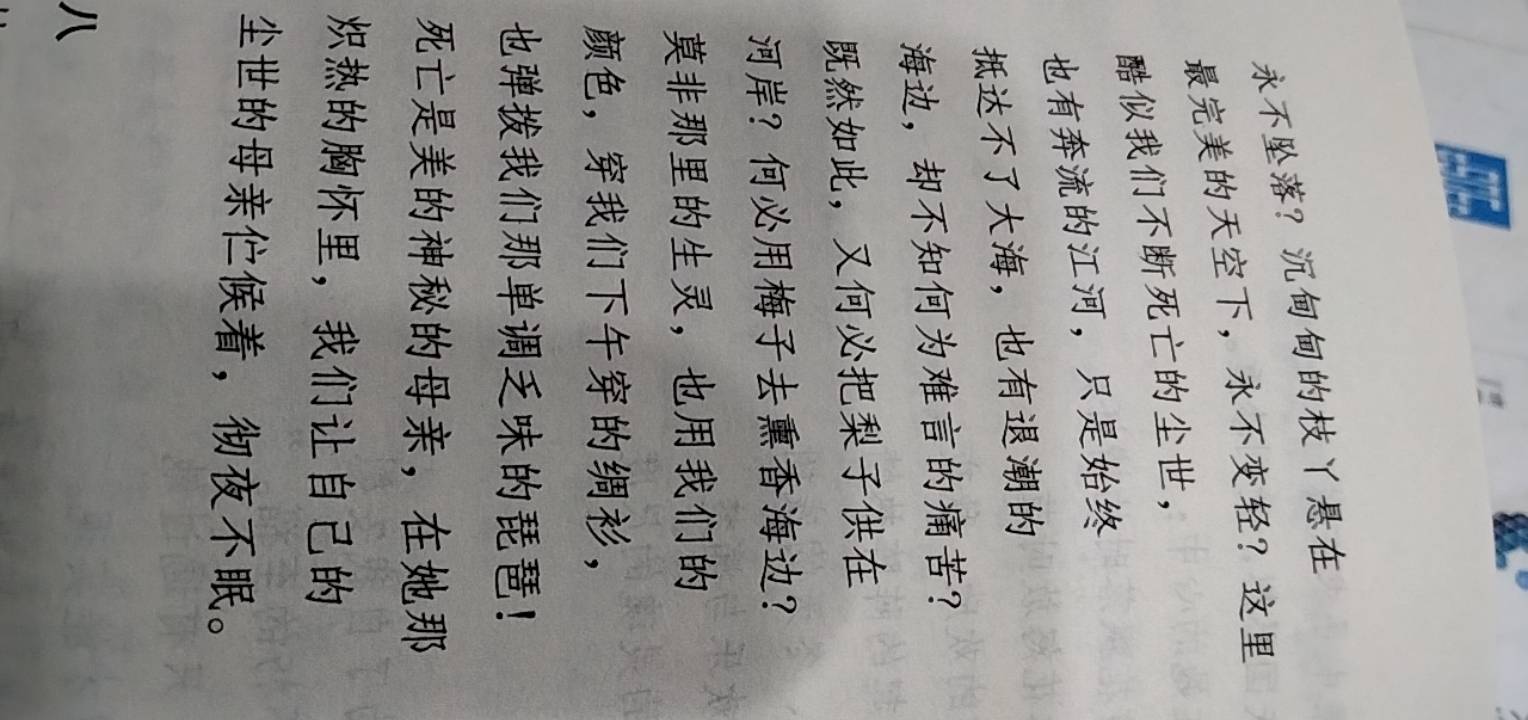 永不坠落？沉甸甸的枝丫悬在
最完美的天空下，永不变轻？这里
酷似我们不断死亡的尘世，
也有奔流的江河，只是始终
抵达不了大海，也有退潮的
海边，却不知何为难言的痛苦？
既然如此，又何必把梨子供在
河岸？何必用梅子去熏香海边？
莫非那里的生灵，也用我们的
颜色，穿我们下午穿的绸衫，
也弹拨我们那单调乏味的琵琶！
死亡是美的神秘的母亲，在她那
炽热的胸怀里，我们让自己的
尘世的母亲伫候着，彻夜不眠。
八